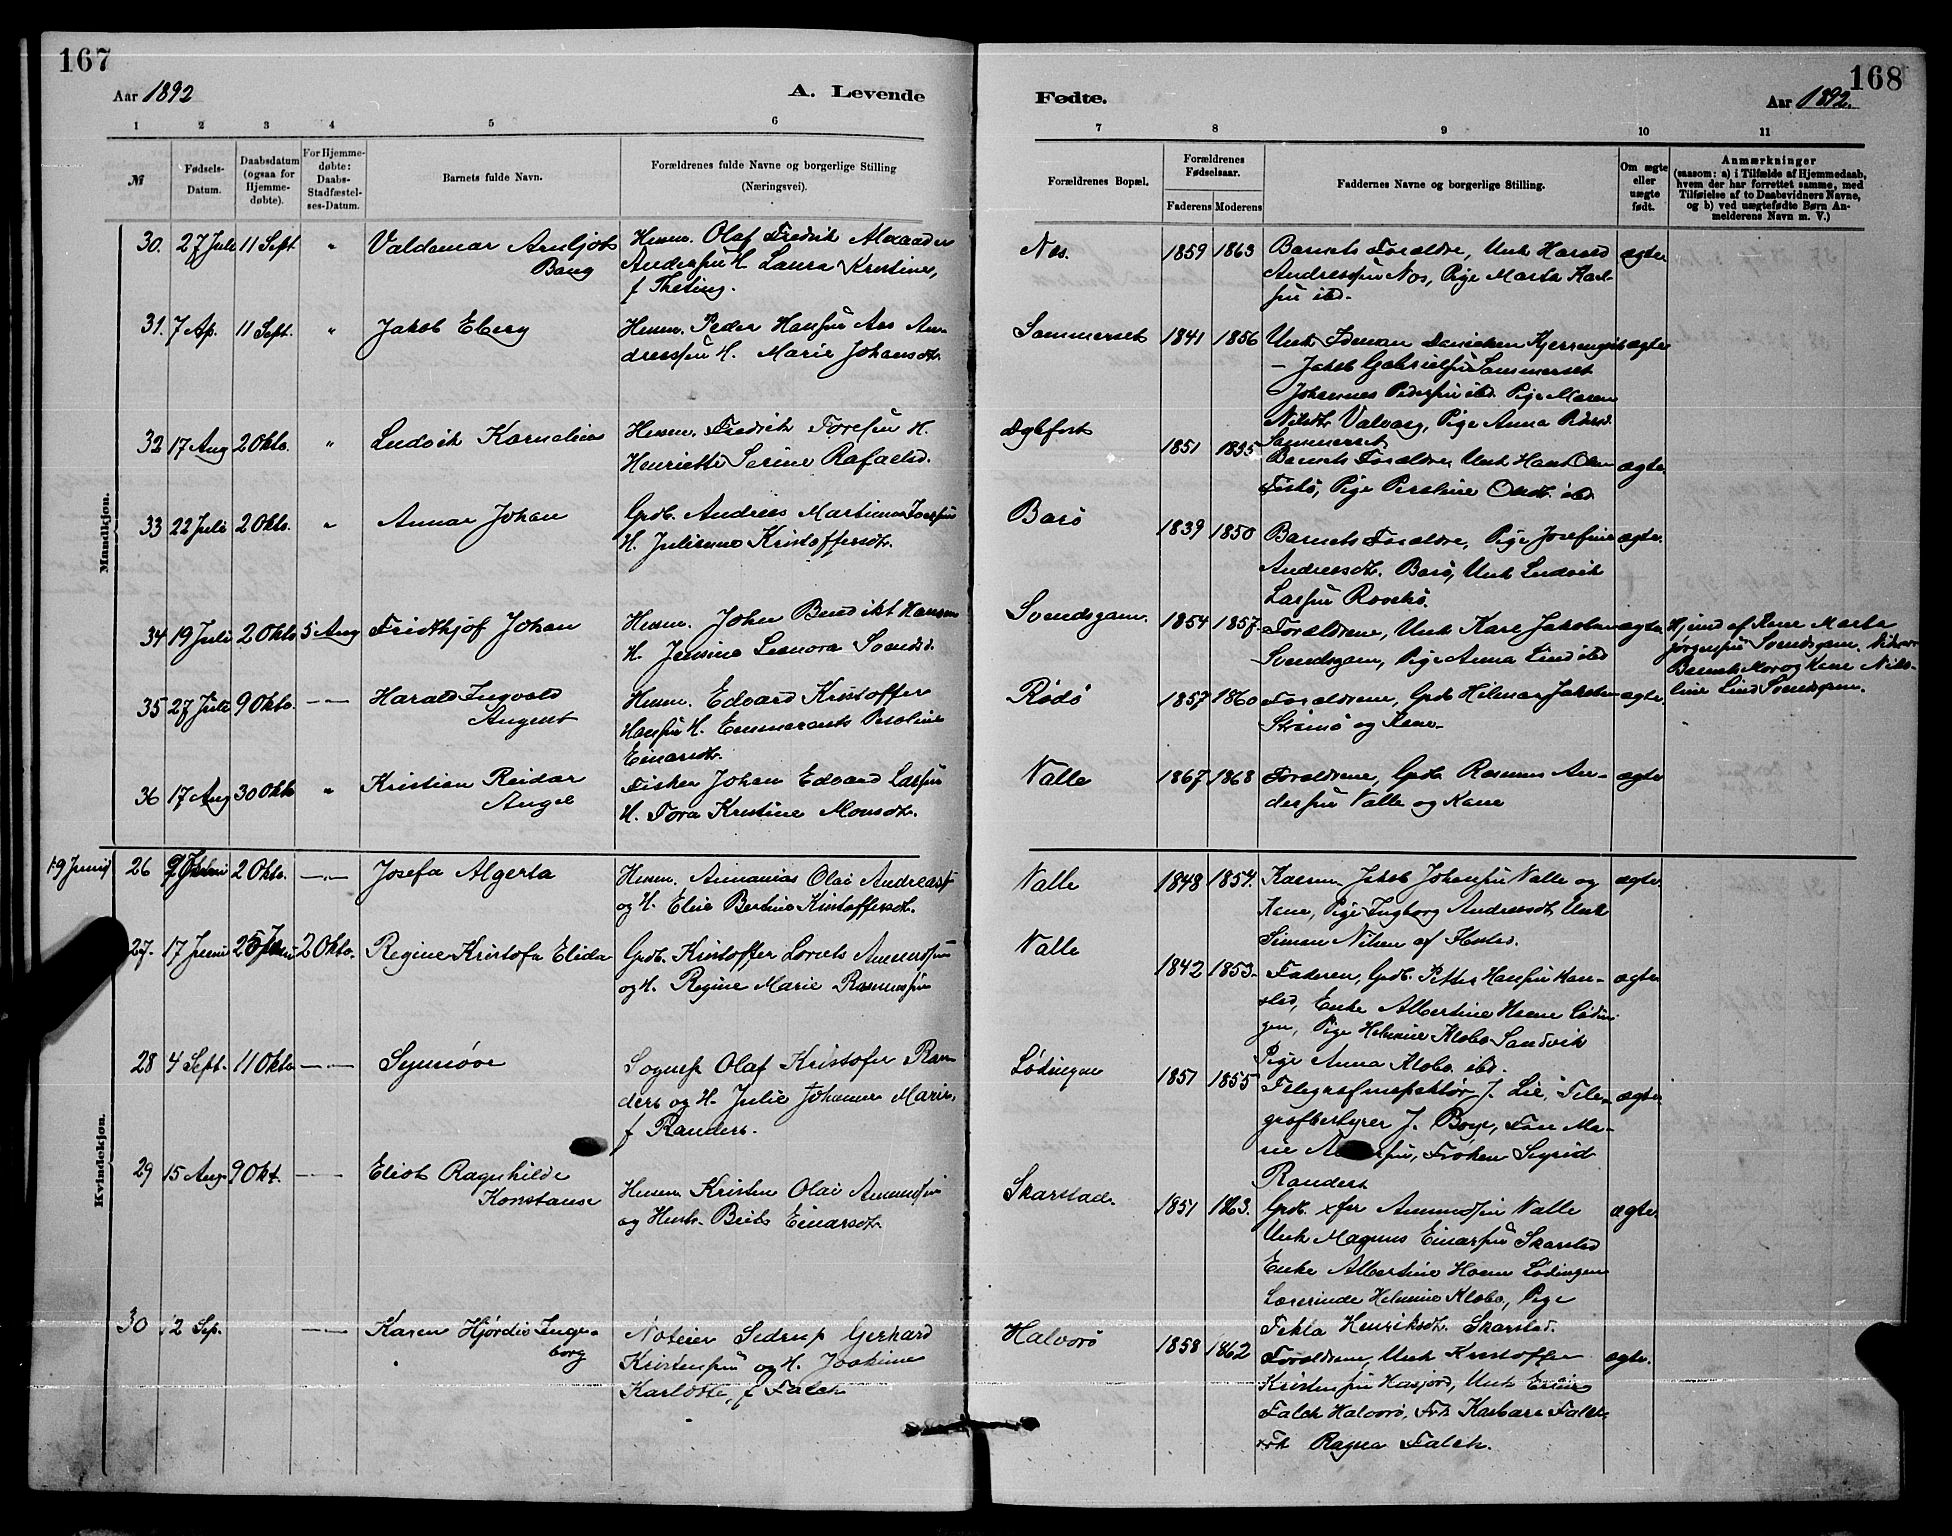 167
168
Aar 1892
A. Levende
Fødte.
Aar 1892.
1 2 3 4 5 6 7 8 9 10 11
№
Fødsels-
Datum.
Daabsdatum
(ogsaa for
Hjemme-
døbte).
For Hjemme-
døbte:
Daabs-
Stadfæstel-
ses-Datum.
Barnets fulde Navn.
Forældrenes fulde Navne og borgerlige Stilling
(Næringsvei).
Forældrenes Bopæl.
Forældrenes
Fødselsaar.
Faderens Moderens
Faddernes Navne og borgerlige Stilling.
Om ægte
eller
uægte
født.
Anmærkninger
(saasom: a) i Tilfælde af Hjemmedaab,
hvem der har forrettet samme, med
Tilføielse af to Daabsvidners Navne,
og b) ved uægtefødte Børn An-
melderens Navn m. V.)
Mandkjøn.
30. 27 Juli 11 Sept. " Valdemar Arnljot
Bang
Husm. Olaf Fredrik Alexander
Andersen H. Laura Kristine,
f Theting.
Nes. 1859 1863
Barnets Forældre, Unk Harald
Andreassen Nes, Pige Marta Karl-
sen ibd.
ægte
31. 7 Ap. 11 Sept. " Jakob Eberg
Husm. Peder Hansen Aas An-
dreassen H. Marie Johansdt.
Sommerset 1841 1856
Jakob Gabrielsen Sommerset
Johannes Pedersen ibd. Pige Maren
Nilsdt. Valvaag, Pige Anna Pedersd.
Sommerset
ægte
32 17 Aug 2 Okto. " Ludvik Kornelius
Husm. Fredrik Toresen H.
Henriette Serine Rafaelsd.
1851 1855
Barnets Forældre, Unk Hans Olsen
Pige Perstine Olsdt. ibd.
ægte.
33 22 Juli 2 Okto. " Annar Johan
Grdb. Andreas Martinus
H. Julianne Kristoffersdt.
Barø 1839 1850
Barnets Forældre, Pige Josefine
Andreasdt. Barø, Unk Ludvik
Larsen
ægte.
34 19 Juli 2 Okto 5 Aug Fridthjof Johan
Husm. Johan Bendikt Hansen
H. Jensine Leonora Svendsd.
Svendsgam. 1854 1857.
Forældrene, Unk Karl Jakobsen
Svendsgam, Pige Anna Lind ibd
ægte
Hjemd af Kone Marta
Jørgensen Svendsgam.
Barnets Mor og Kone Niko-
line Lind Svendsgam.
35 27 Juli 9 Okto. Harald Ingvald
August
Husm. Edvard Kristoffer
Hansen H. Emmerants Peroline
Einarsdt.
Rødø 1857 1860
Forældrene, Grdb Hilmar Jakobsen
Strømø og Kone.
ægte.
36 17 Aug 30 Okto " Kristian Reidar
Angel
Fisker Johan Edvard Larsen
H. Tora Kristine Monsdt.
Valle 1867 1868
Forældrene, Grdb. Rasmus An-
dersen Valle og Kone
ægte
Kvindekjøn.
19 Juni
26 2 Okto. Josefa Algerta
Husm. Annanias Olai Andreass
og H. Elise Bertine Kristoffersdt.
Valle 1848 1854.
Jakob Johansen Valle og
Kone, Pige Ingborg Andreasdt, Unk
Simon Nilsen af Hosted.
ægte.
27. 17 Juni 25 2 Okto. Regine Kristofa Elida
Grdb. Kristoffer Lorets Amundsen
og H. Regine Marie Rasmussen
Valle 1842 1853.
Faderen, Grdb. Petter Hansen Han-
sted, Enke Albertine Haene Lødin-
gen, Pige Helmine Klobo Sandvik
Pige Anna Klobo ibd.
ægte.
28 4 Sept. 11 Okto. Synnøve
Sognep Olaf Kristofer Ran-
ders og H. Julie Johanne Marie,
f Randers.
Lødingen 1851 1855
Telegrafinspektør J. Lie, Tele-
grafbestyrer J. Boye, Frøken Sigrid
Randers
ægte
29 15 Aug. 9 Okt. Eliot Ragnhilde
Konstanse
Husm Kristen Olai Amundsen
og Hustr. Berit Einarsdt.
Skarstad. 1851 1863.
Grdb. Amundsen Valle
Unk Magnus Einarsen Skarstad
Enke Albertine Haene Lødingen
Lærerinde Helmine Klobo, Pige
Tekla Henriksdt. Skarstad.
ægte.
30 12 Sep. Karen Hjørdis Inge-
borg
Noteier Sedrup Gerhard
Kristensen og H. Joakime
Karlotte, f Falch
Halvorø 1858 1862
Forældrene, Unk Kristoffer
Kristensen Hasjord, Unk
Falch Halvorø, Frk Karbare Falch
Frk Ragna Falch.
ægte.